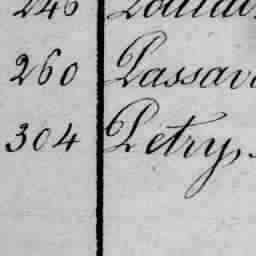 246
260 Passava
304 Petry,